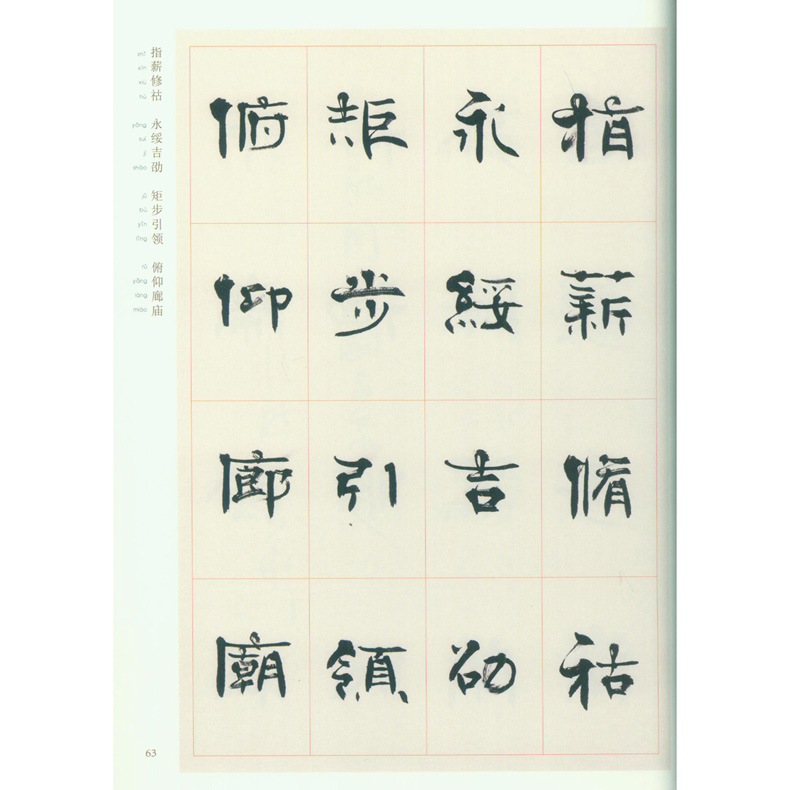 指薪脩祜
永綏吉劭
矩步引領
俯仰廊廟
指薪修祜 永绥吉劭 矩步引领 俯仰廊庙
zhǐ xīn xiū hù yǒng suí jí shào jǔ bù yǐn lǐng fǔ yǎng láng miào
63